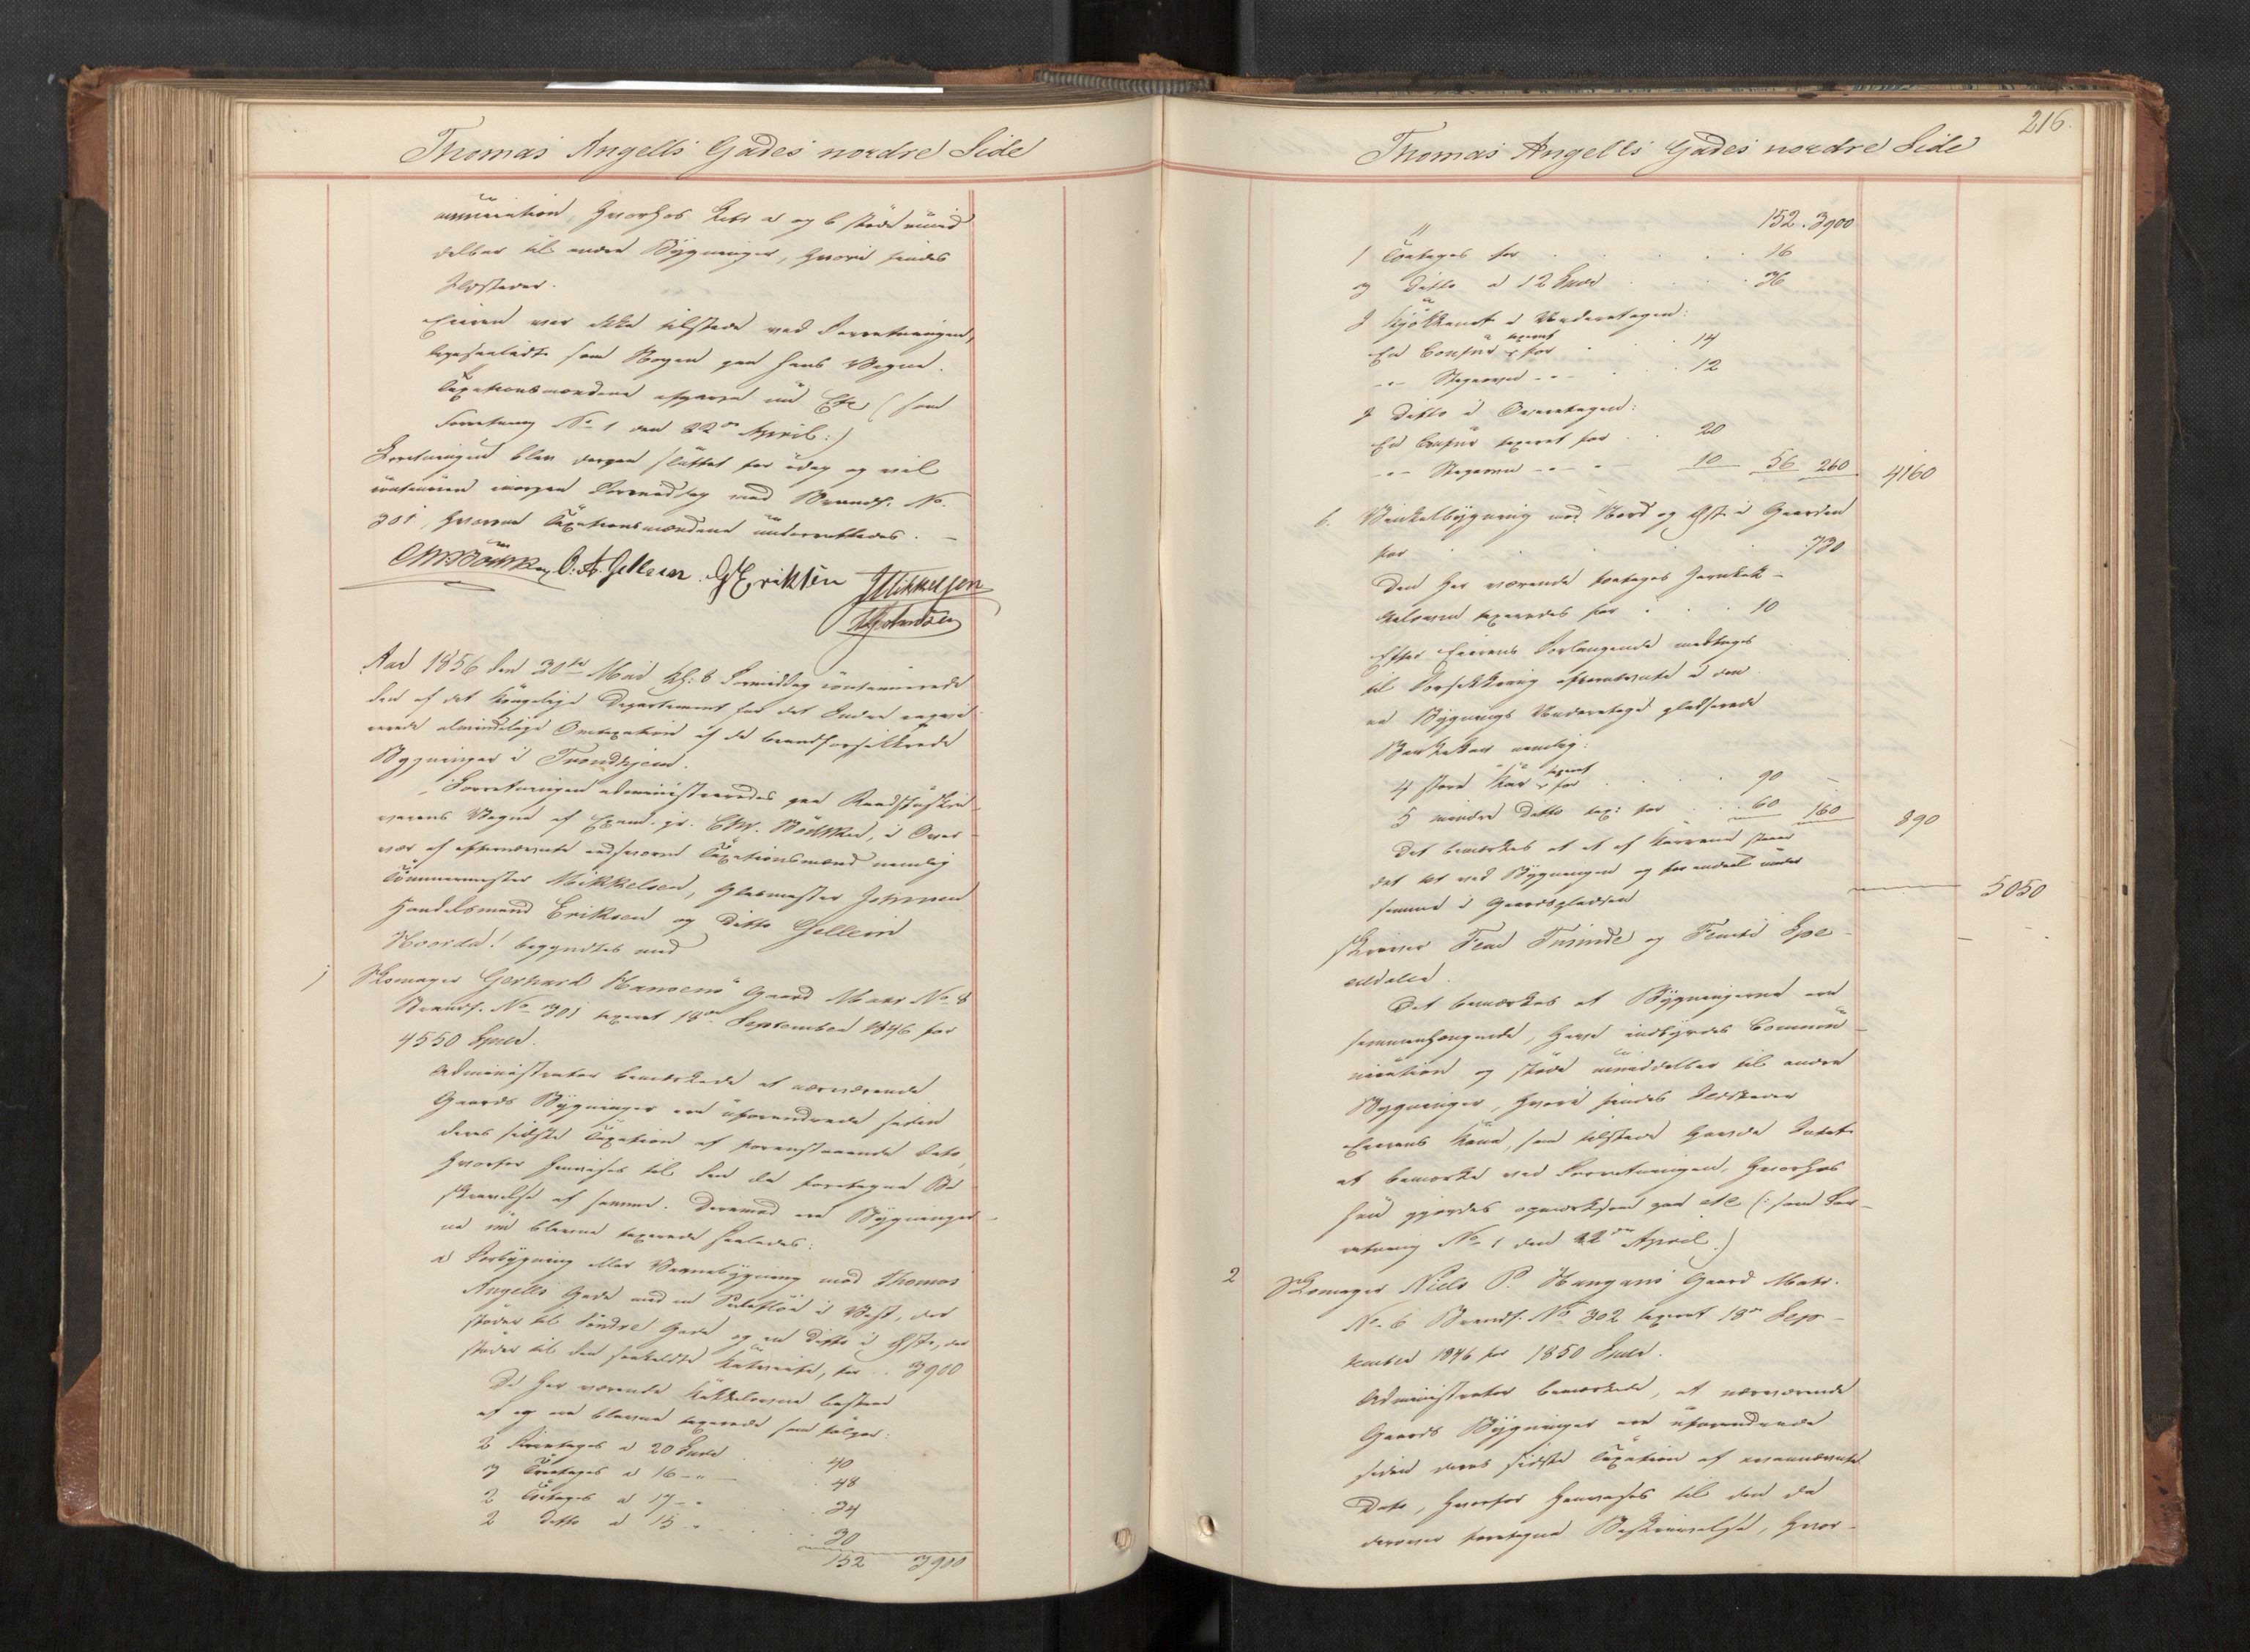 Thomas Angells Gades nordre Side
munication, hvorhos Litr a og b støde umid
delbar til andre Bygninger, hvori findes
Ildsteder.
Eieren var ikke tilstede ved Forretningen,
ligesaalidt som Nogen paa hans Vegne.
Taxationsmændene afgave nu Etc (som
Forretning No 1 den 22de April:)
Forretningen blev derpaa sluttet for idag og vil
continuere morgen Formiddag med Brandf. No
301, hvorom Taxationsmændene underrettedes.
O. A. Gellein. Eriksen JMikkelsen
Aar 1856 den 30te Mai Kl: 8 Formiddag continuerede
den af det kongelige Departement for det Indre
almindelige Omtaxation af de brandforsikkrede
Bygninger i Trondhjem.
Forretningen administreredes paa Raadstuskri
verens Vegne af Exam. jr. Chr. Bödtker, i Over
vær af efternævnte edsvorne Taxationsmænd nemlig
Tømmermester Mikkelsen, Glasmester Johnsen
Handelsmand Eriksen og Ditto Gellein
Hvorda! begyndtes med
1 Skomager Gerhard Hansens Gaard Matr No 8
Brandf. No 301 taxeret 18de September 1846 for
4550 Spd.
Administrator bemærkede at nærværende
Gaards Bygninger ere uforandrede siden
deres sidste Taxation af foranstaaende Dato,
hvorfor henvises til den da foretagne Be
skrivelse af samme. Derimod ere Bygninger-
ne nu blevne taxerede saaledes:
a Forbygning eller Vaanebygning mod Thomas
Angells Gade med en Sidefløi i Vest, der
støder til Søndre Gade og en ditto i Øst, der
støder til den saakaldte , for . . 3900
De her værende Kakkelovne bestaae
af og ere blevne taxerede som følger:
2 a 20 Spd . 40
3 Treetages a 16 - " - . 48
2 Toetages a 17 - " . 34
2 ditto a 15 - " . 30
152 3900
216.
Thomas Angells Gades nordre Side
152. 3900
1 Toetages for . . . 16
3 Ditto a 12 Spd . . 36
I Kjøkkenet i Underetagen:
En Comfur taxeret for . . 14
- " - Stegeovn - " - . . 12
I Ditto i Overetagen:
En Comfur taxeret for . . 20
- " - Stegeovn - " - 10 56 260 4160
b. Vinkelbygning mod Nord og Øst i Gaarden
for . . . . 730
Den her værende toetages Jernkak-
kelovn taxeredes for . . . 10
Efter Eierens Forlangende medtages
til Forsikkring efternævnte i den
ne Bygnings Underetage pladserede
Barkekar nemlig:
4 store Kar taxeret for . . . 90 -
5 mindre Ditto tax: for . . . 60 160 890
Det bemærkes at et af Karrene staaer
det tæt ved Bygningen og for endeel under
samme i Gaardspladsen
5050
skriver Fem Tusinde og Femti Spe-
ciedaler.
Det bemærkes at Bygningerne ere
sammenhængende, have indbyrdes Commu
nication og støde umiddelbar til andre
Bygninger, hvori findes Ildsteder
Eierens Kone, som tilstede havde Intet
at bemærke ved Forretningen, hvorhos
hun gjordes opmærksom paa etc (: som For-
retning No 1 den 22de April.)
2 Skomager Niels P. Haugans Gaard Matr.
No 6 Brandf. No 302 taxeret 18de Sep-
tember 1846 for 1850 Spd.
Administrator bemærkede, at nærværende
Gaards Bygninger ere uforandrede
siden deres sidste Taxation af ovennævnte
Dato, hvorfor henvises til den da
derover foretagne Beskrivelse, hvor-